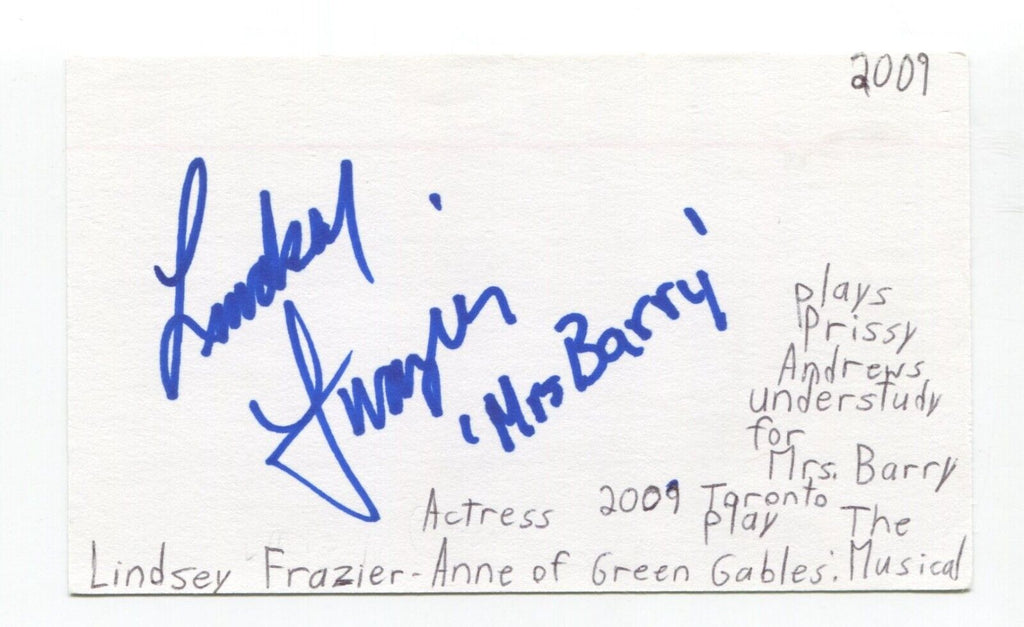 2009
Lindsey
Frazier
'Mrs Barry'
plays
Prissy
Andrews
understudy
for
Mrs. Barry
Actress 2009 Toronto
play The
Lindsey Frazier-Anne of Green Gables: Musical